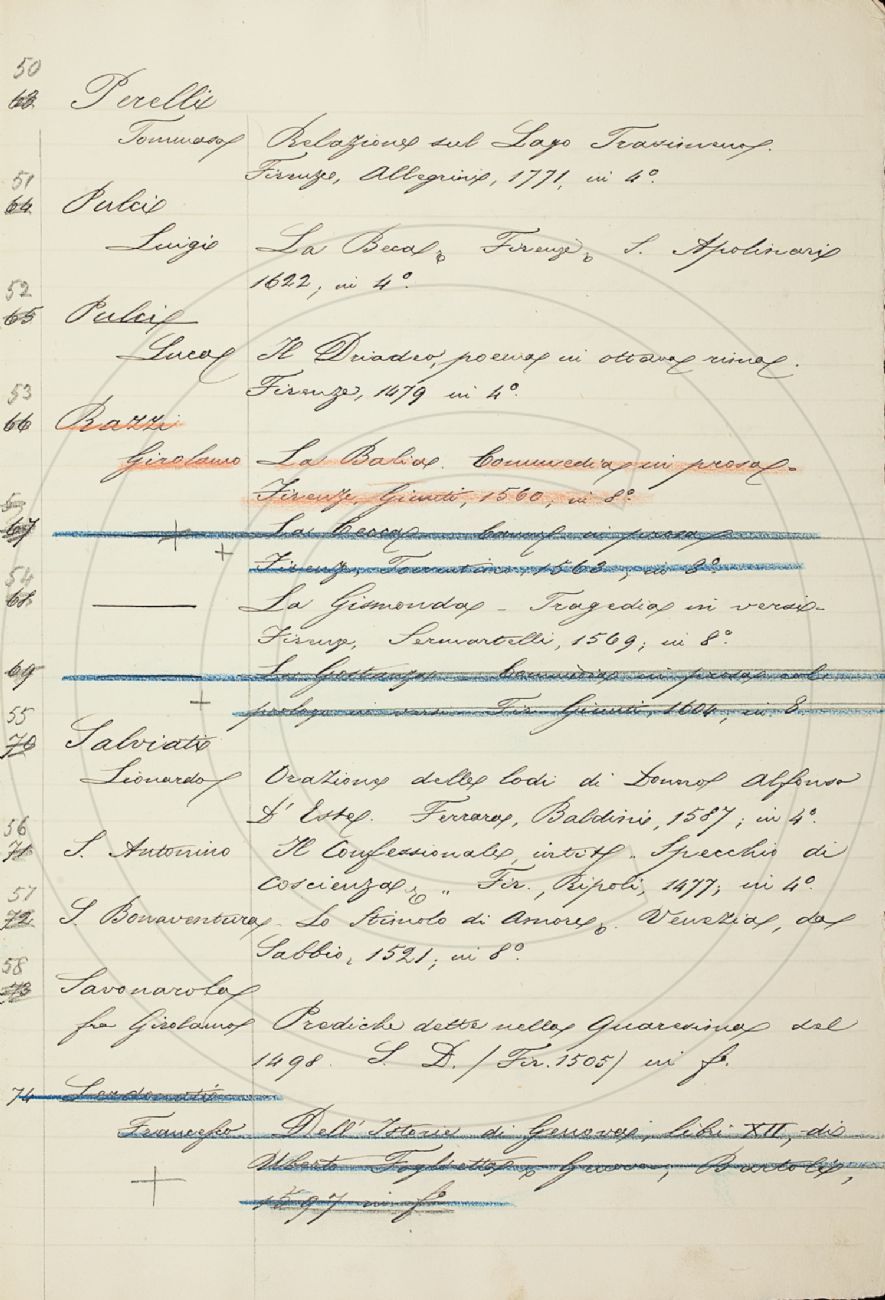 50
63 Perelli
Tommaso Relazione sul Lago Trasimeno.
Firenze, Allegrini, 1771, in 4º.
51
64 Pulci
Luigi La Beca, Firenze, S. Apolinari
1622, in 4º.
52
65 Pulci
Luca Il Driadeo, poema in ottava rima.
Firenze, 1479 in 4º.
53
66 Razzi
Girolamo La Balia. Commedia in prosa -
Firenze, Giunti, 1560, in 8º.
67 La Cecca in prosa
Firenze, Torrentino, 1563, in 8º.
54
68 La Gismonda - Tragedia in versi -
Firenze, Sermartelli, 1569; in 8º.
69 La Gostanza - Commedia in prosa col
prologo in versi - Fir. Giunti, 1604, in 8.
55
70 Salviati
Lionardo Orazione delle lodi di Donno Alfonso
D' Este. Ferrara, Baldini, 1587; in 4º.
56
71 S. Antonino Il Confessionale, intit. Specchio di
coscienza, " Fir., Ripoli, 1477; in 4º.
57
72 S. Bonaventura - Lo Stimolo di Amore, Venezia, da
Sabbio, 1521; in 8º.
58
73 Savonarola
fra Girolamo Prediche dette nella Quaresima del
1498. S. D. (Fir. 1505) in fº.
74 Serdonati
Francesco Dell' Istorie di Genova, libri XII, di
Uberto Foglietta, Genova, Bartoli,
1597 in fº